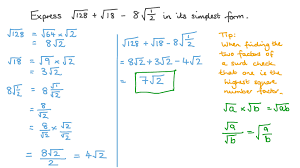 Express √128 + √18 - 8√(1/2) in its simplest form.
√128 = √64 × √2
= 8√2
√18 = √9 × √2
= 3√2
8√(1/2) = 8√1/√2
= 8/√2
= 8/√2 × √2/√2
= 8√2/2 = 4√2
√128 + √18 - 8√(1/2)
= 8√2 + 3√2 - 4√2
= 7√2
Tip:
When finding the
two factors of
a surd check
that one is the
highest square
number factor.
√a × √b = √ab
√a/√b = √(a/b)